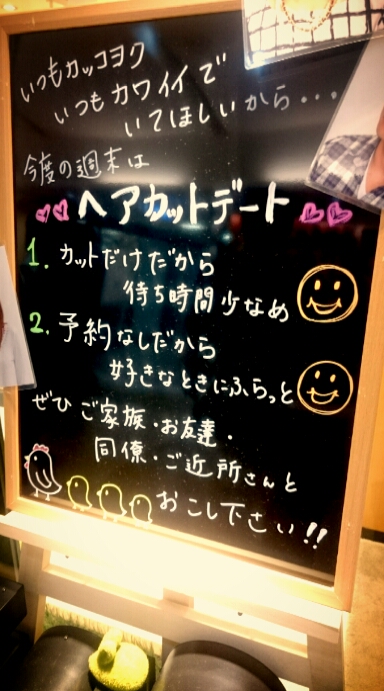 いつもカッコヨク
いつもカワイイで
いてほしいから・・・
今度の週末は
ヘアカットデート
1. カットだけだから
待ち時間少なめ
2. 予約なしだから
好きなときにふらっと
ぜひご家族・お友達・
同僚・ご近所さんと
おこし下さい!!